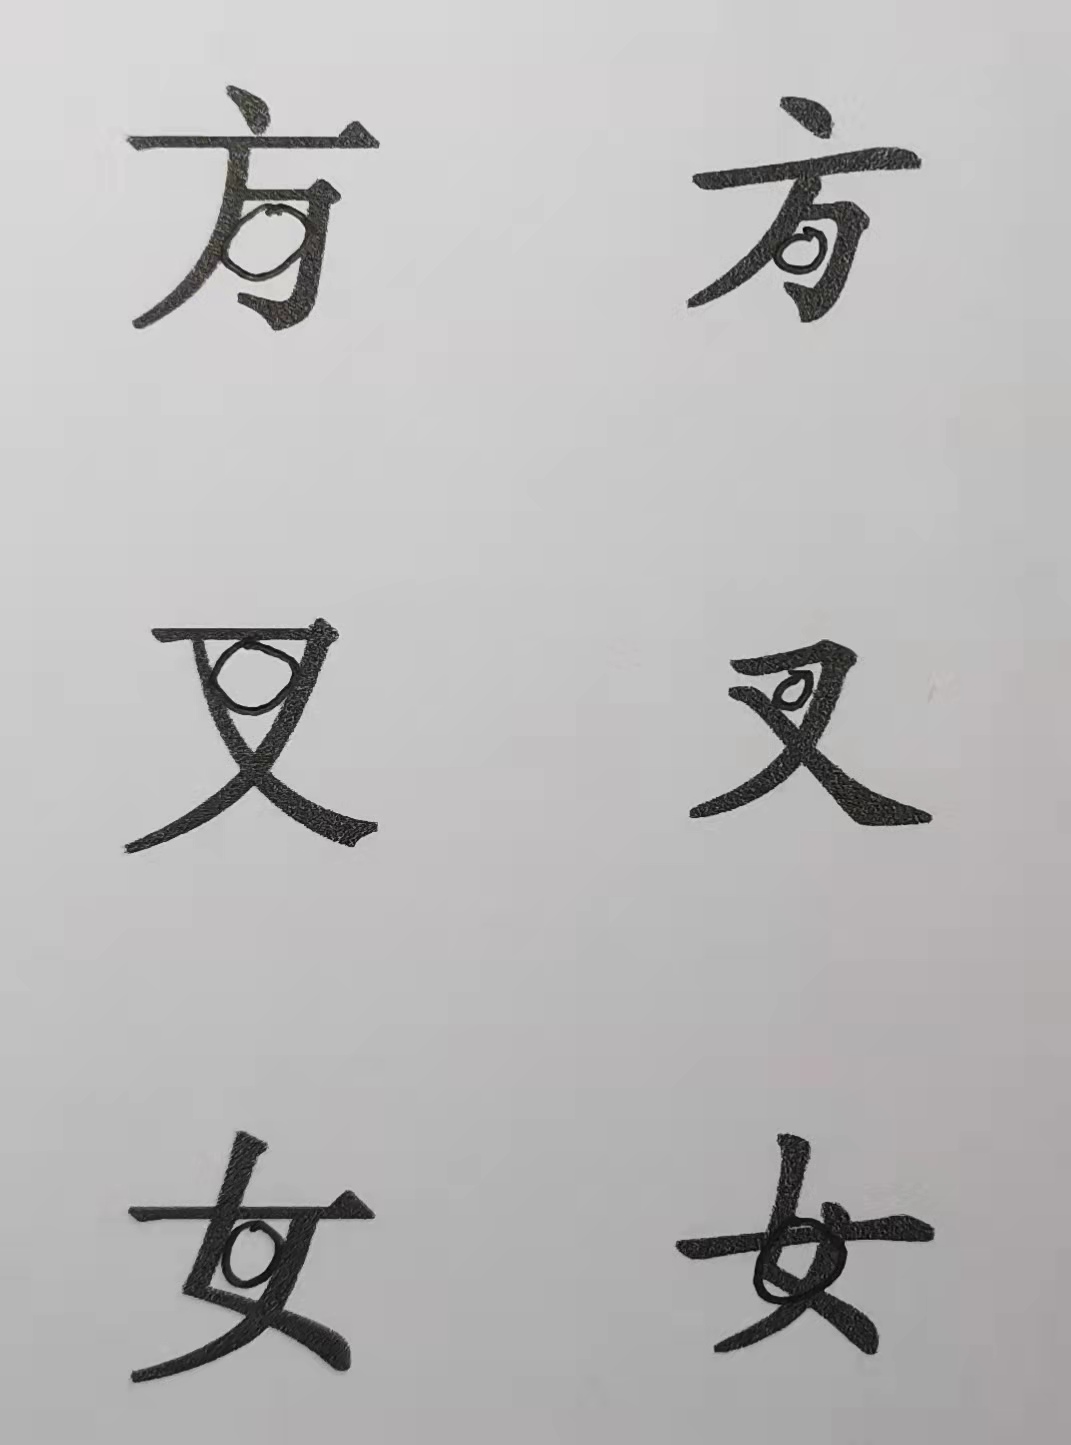 方 方
又 又
女 女